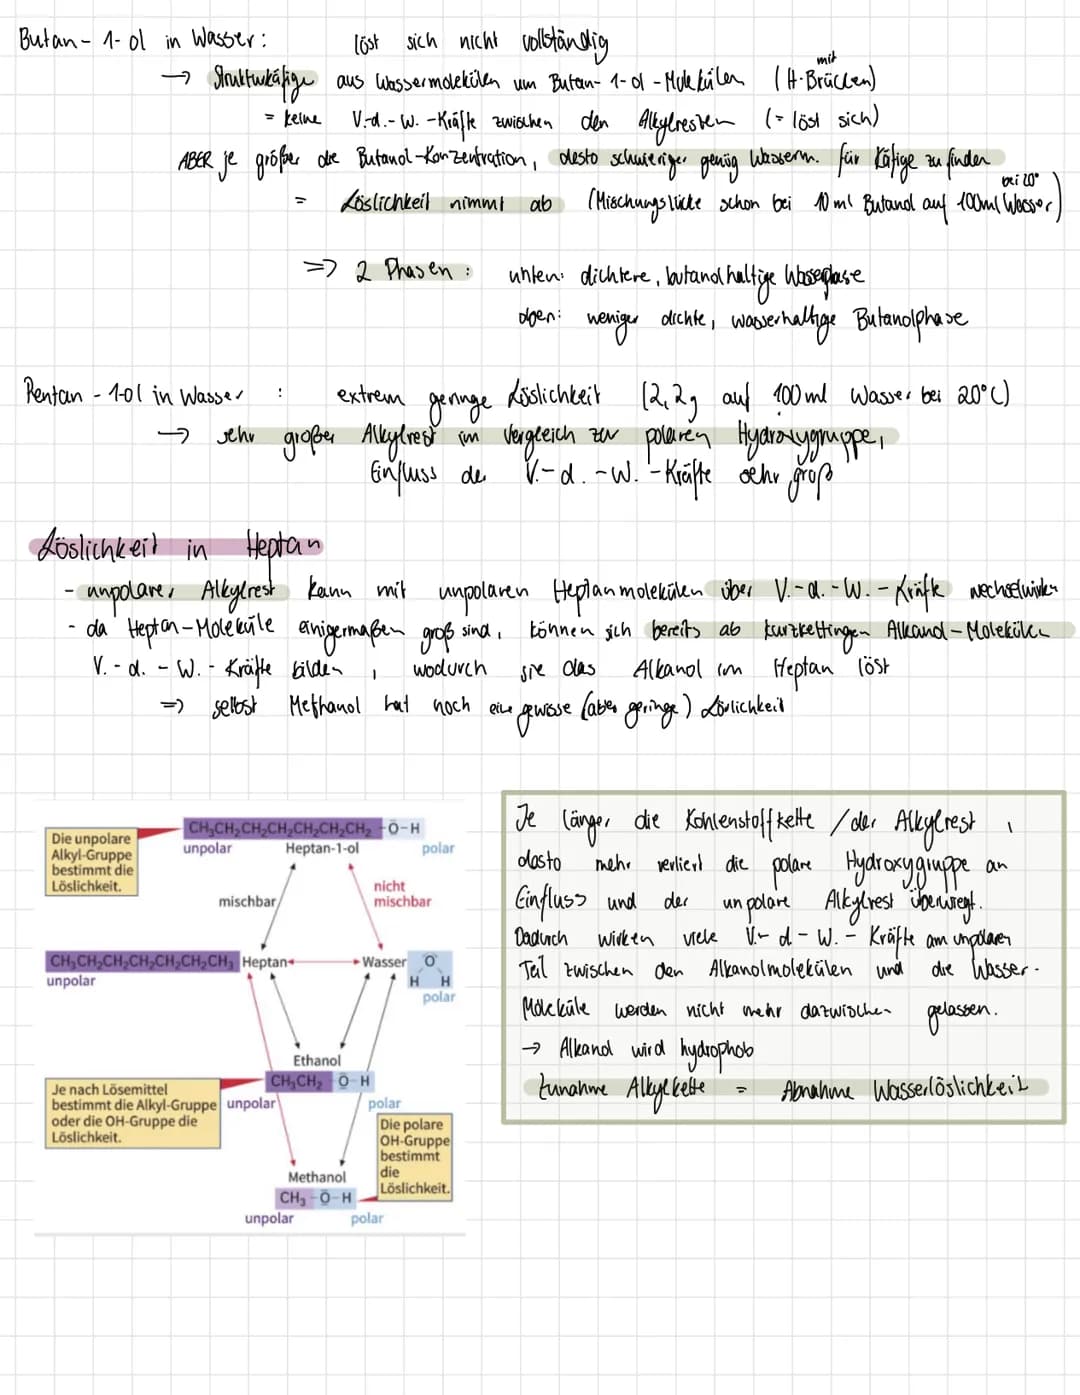 Butan-1-ol in Wasser: löst sich nicht vollständig
→ Strukturkäfige aus Wassermolekülen um Butan-1-ol-Molekülen (mit H-Brücken)
= keine V.-d.-W.-Kräfte zwischen den Alkylresten (= löst sich)
ABER je größer die Butanol-Konzentration, desto schwieriger genüg Wasserm. für Käfige zu finden
= Löslichkeit nimmt ab (Mischungslücke schon bei 10 ml Butanol auf 100ml Wasser bei 20°)
=> 2 Phasen: unten: dichtere, butanolhaltige Wasserphase
oben: weniger dichte, wasserhaltige Butanolphase
Pentan-1-ol in Wasser: extrem geringe Löslichkeit (2,2g auf 100 ml Wasser bei 20°C)
→ sehr großer Alkylrest im Vergleich zur polaren Hydroxygruppe,
Einfluss der V.-d.-W.-Kräfte sehr groß
Löslichkeit in Heptan
- unpolarer Alkylrest kann mit unpolaren Heptanmolekülen über V.-d.-W.-Kräfte wechselwirken
- da Heptan-Moleküle einigermaßen groß sind, können sich bereits ab kurzkettingen Alkanol-Molekülen
V.-d.-W.-Kräfte bilden, wodurch sie das Alkanol im Heptan löst
=> selbst Methanol hat noch eine gewisse (aber geringe) Löslichkeit
Die unpolare
Alkyl-Gruppe
bestimmt die
Löslichkeit.
CH₃CH₂CH₂CH₂CH₂CH₂CH₂-O-H
unpolar Heptan-1-ol polar
mischbar
nicht
mischbar
CH₃CH₂CH₂CH₂CH₂CH₂CH₃ Heptan Wasser O
unpolar
H H
polar
Ethanol
CH₃CH₂ O-H
unpolar polar
Je nach Lösemittel
bestimmt die Alkyl-Gruppe
oder die OH-Gruppe die
Löslichkeit.
Die polare
OH-Gruppe
bestimmt
die
Löslichkeit.
Methanol
CH₃-O-H
unpolar polar
Je länger die Kohlenstoffkette / der Alkylrest,
desto mehr verliert die polare Hydroxygruppe an
Einfluss und der unpolare Alkylrest überwiegt.
Dadurch wirken viele V.-d-W.-Kräfte am unpolaren
Teil zwischen den Alkanolmolekülen und die Wasser-
Moleküle werden nicht mehr dazwischen gelassen.
→ Alkanol wird hydrophob
Zunahme Alkylkette = Abnahme Wasserlöslichkeit